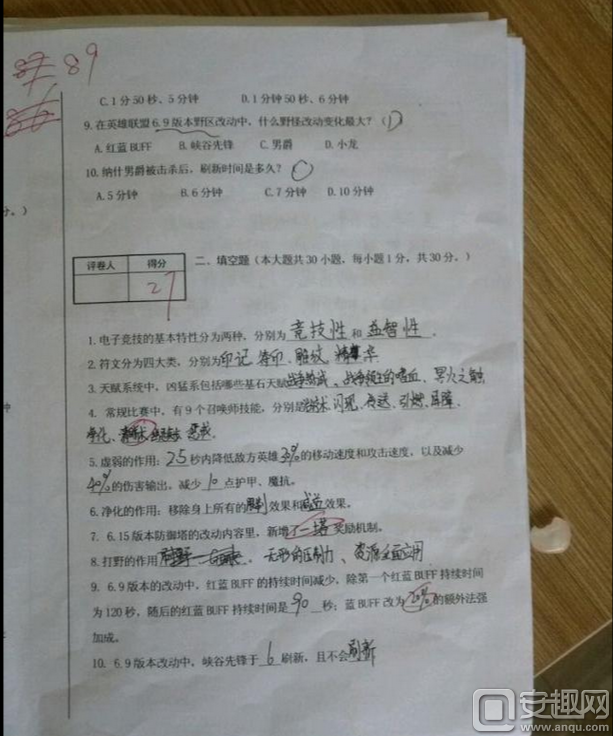 89
C.1分50秒、5分钟 D.1分钟50秒、6分钟
9.在英雄联盟6.9版本野区改动中，什么野怪改动变化最大？（D）
A.红蓝BUFF B.峡谷先锋 C.男爵 D.小龙
10.纳什男爵被击杀后，刷新时间是多久？（）
A.5分钟 B.6分钟 C.7分钟 D.10分钟
分。）
评卷人 得分
27
二、填空题（本大题共30小题，每小题1分，共30分。）
1.电子竞技的基本特性分为两种，分别为 竞技性 和 益智性 .
2.符文分为四大类，分别为印记、符印、雕纹、精华
3.天赋系统中，凶猛系包括哪些基石天赋 战争热诚、战争领主的嗜血、冥火之触
4. 常规比赛中，有9个召唤师技能，分别是治疗术、闪现、传送、引燃、屏障、
净化、惩戒
5.虚弱的作用：2.5秒内降低敌方英雄30%的移动速度和攻击速度，以及减少
40%的伤害输出，减少10点护甲、魔抗。
6.净化的作用：移除身上所有的限制效果和减益效果。
7. 6.15版本防御塔的改动内容里，新增了一塔奖励机制。
8.打野的作用 无形的压制力、资源全面应用
9. 6.9版本的改动中，红蓝BUFF的持续时间减少，除第一个红蓝BUFF持续时间
为120秒，随后的红蓝BUFF持续时间是 90 秒；蓝BUFF改为20%的额外法强
加成。
10. 6.9版本改动中，峡谷先锋于 6 刷新，且不会刷新
钟
安趣网
www.anqu.com